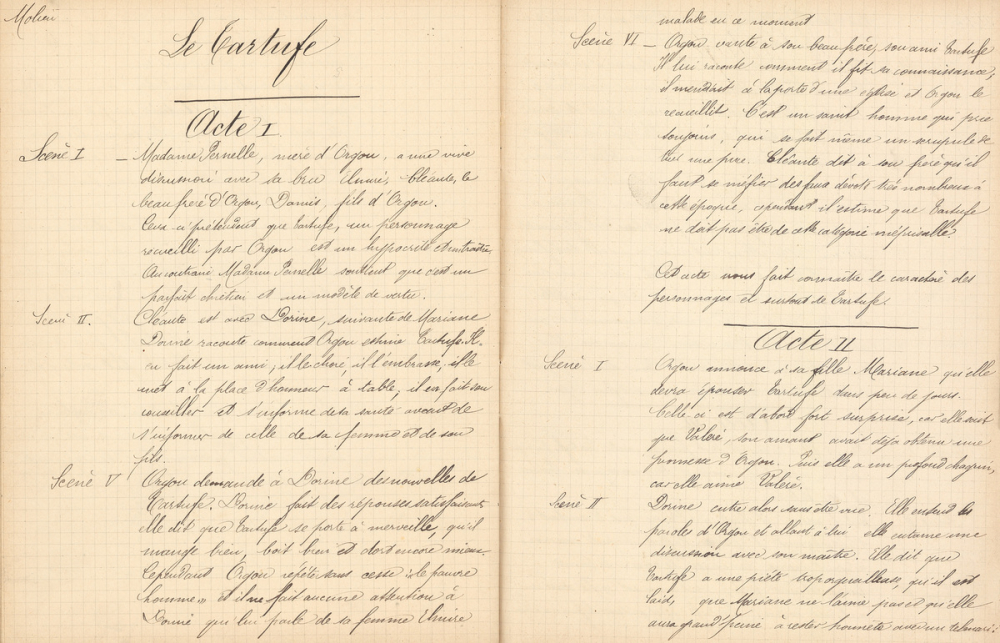 Molière
Le Tartufe
Acte I
Scène I – Madame Pernelle, mère d'Orgon, a une vive
discussion avec sa bru Elmire, Cléante, le
beau frère d'Orgon, Damis, fils d'Orgon.
Ceux ci prétendent que Tartufe, un personnage
recueilli par Orgon est un hypocrite et un traître.
Au contraire Madame Pernelle soutient que c'est un
parfait chrétien et un modèle de vertu.
Scène II. Cléante est avec Dorine, suivante de Mariane
Dorine raconte comment Orgon estime Tartufe. Il
en fait un ami ; il le choie, il l'embrasse, il le
met à la place d'honneur à table, il en fait son
conseiller et s'informe de sa santé avant de
s'informer de celle de sa femme et de son
fils.
Scène V Orgon demande à Dorine des nouvelles de
Tartufe. Dorine fait des réponses satisfaisantes
elle dit que Tartufe se porte à merveille, qu'il
mange bien, boit bien et dort encore mieux
Cependant Orgon répète sans cesse "le pauvre
homme" et il ne fait aucune attention à
Dorine qui lui parle de sa femme Elmire
malade en ce moment
Scène VI – Orgon vante à son beau frère, son ami Tartufe
Il lui raconte comment il fit sa connaissance,
il mendiait à la porte d'une église et Orgon le
recueillit. C'est un saint homme qui prie
toujours, qui se fait même un scrupule de
tuer une puce. Cléante dit à son frère qu'il
faut se méfier des faux dévots très nombreux à
cette époque, cependant il estime que Tartufe
ne doit pas être de cette catégorie méprisable.
Cet acte nous fait connaître le caractère des
personnages et surtout de Tartufe.
Acte II
Scène I Orgon annonce à sa fille Mariane qu'elle
devra épouser Tartufe dans peu de jours.
Celle ci est d'abord fort surprise, car elle sait
que Valère, son amant avait déjà obtenu une
promesse d'Orgon. Puis elle a un profond chagrin,
car elle aime Valère.
Scène II Dorine entre alors sans être vue. Elle entend les
paroles d'Orgon et allant à lui elle entame une
discussion avec son maître. Elle dit que
Tartufe a une piété trop orgueilleuse, qu'il est
laid, que Mariane ne l'aime pas et qu'elle
aura grand'peine à rester honnête avec un tel mari.